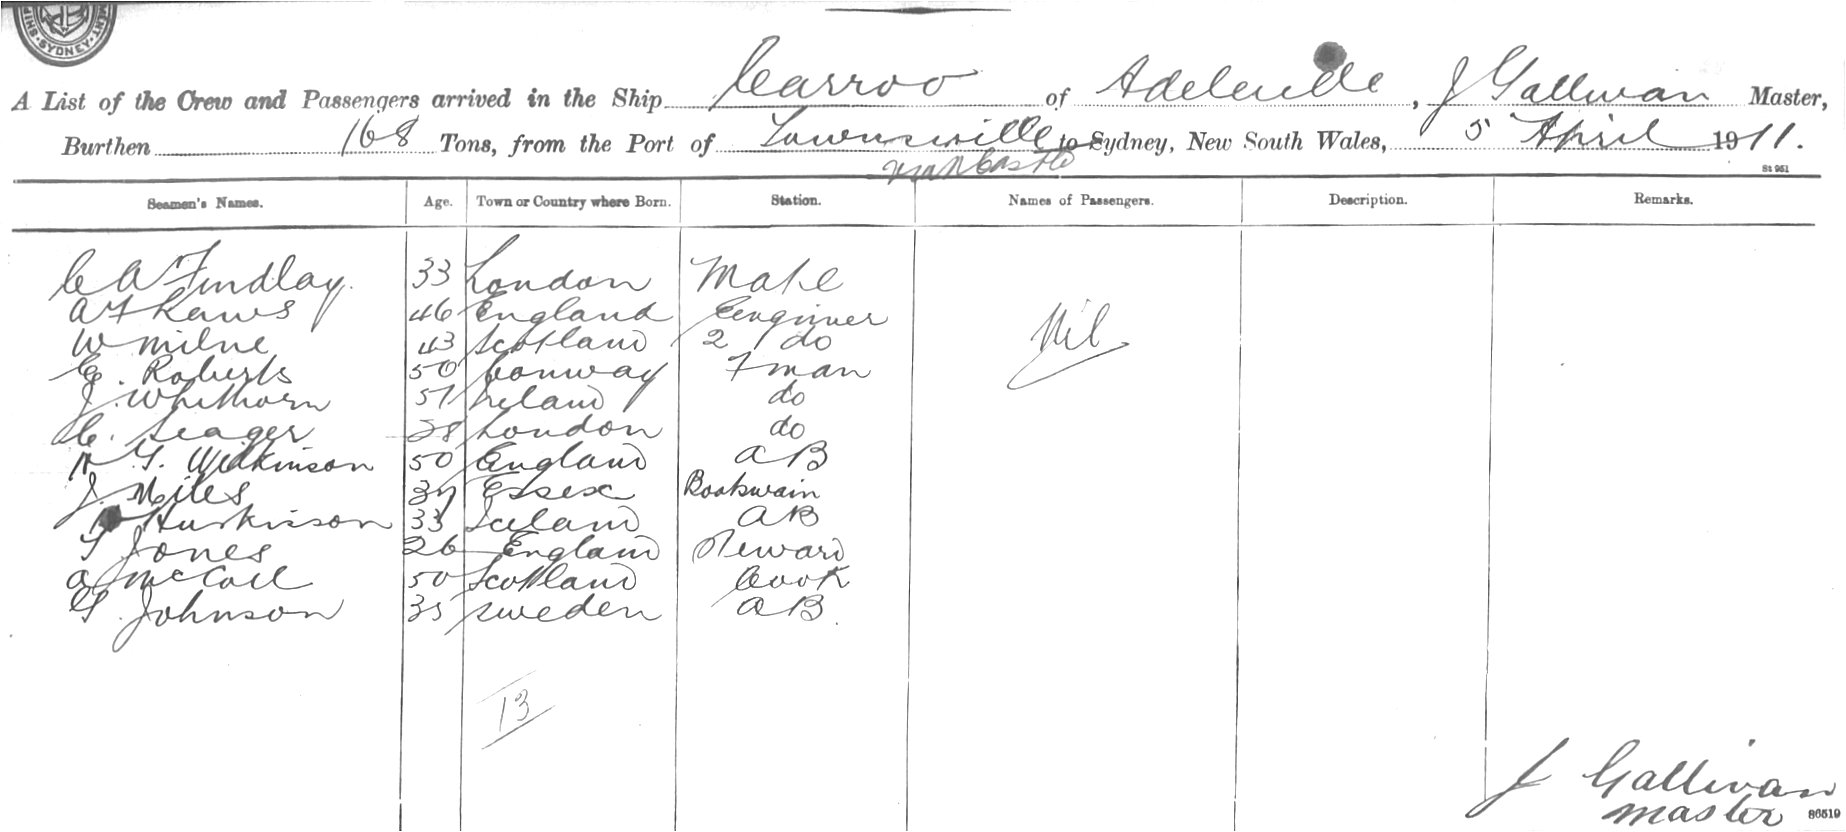 SYDNEY
A List of the Crew and Passengers arrived in the Ship Carroo of Adelaide, J Gallivan Master,
Burthen 168 Tons, from the Port of Townsville to Sydney, New South Wales, 5 April 1911.
via NCastle
St 951
Seamen's Names. Age. Town or Country where Born. Station. Names of Passengers. Description. Remarks.
C A Findlay. 33 London Mate
A F 46 England Enginner
W Milne 43 Scotland 2 do
Nil
E. Roberts 50 Conway Fman
J. Whithorn 51 Ireland do
C. Seager 38 London do
H G. Wilkinson 50 England AB
J. Miles 37 Essex Boatswain
Huskisson 33 Iceland AB
T Jones 26 England Steward
A McColl 50 Scotland Cook
G. Johnson 35 Sweden AB
13
J Gallivan
Master
86519